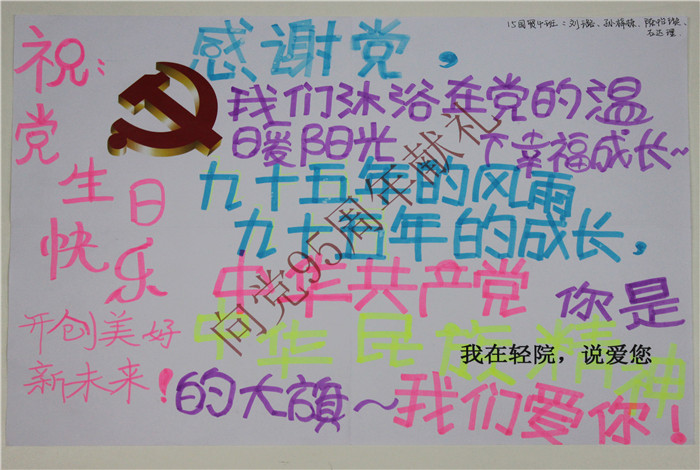 15国贸4班：刘璐、孙
祝：
党
生日
快乐
开创美好
新未来！
感谢党，
我们沐浴在党的温
暖阳光下幸福成长~
九十五年的风雨
九十五年的成长，
中华共产党
你是
中华民族精神
的大旗~我们爱你！
向党95周年献礼
我在轻院，说爱您